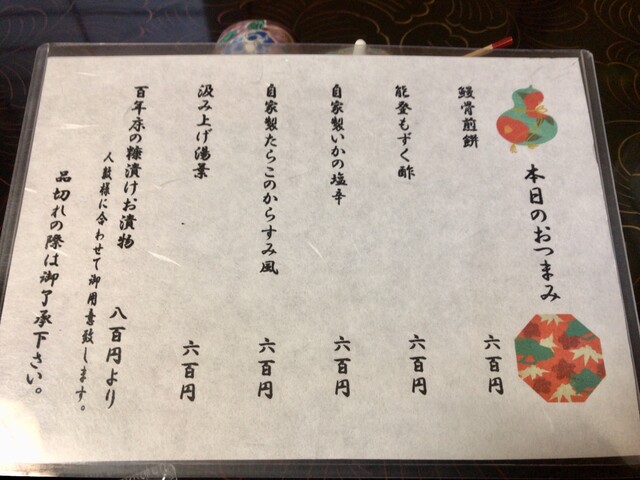 本日のおつまみ
鰻骨煎餅 六百円
能登もずく酢 六百円
自家製いかの塩辛 六百円
自家製たらこのからすみ風 六百円
汲み上げ湯葉 六百円
百年床の糠漬けお漬物 八百円より
人数様に合わせて御用意致します。
品切れの際は御了承下さい。